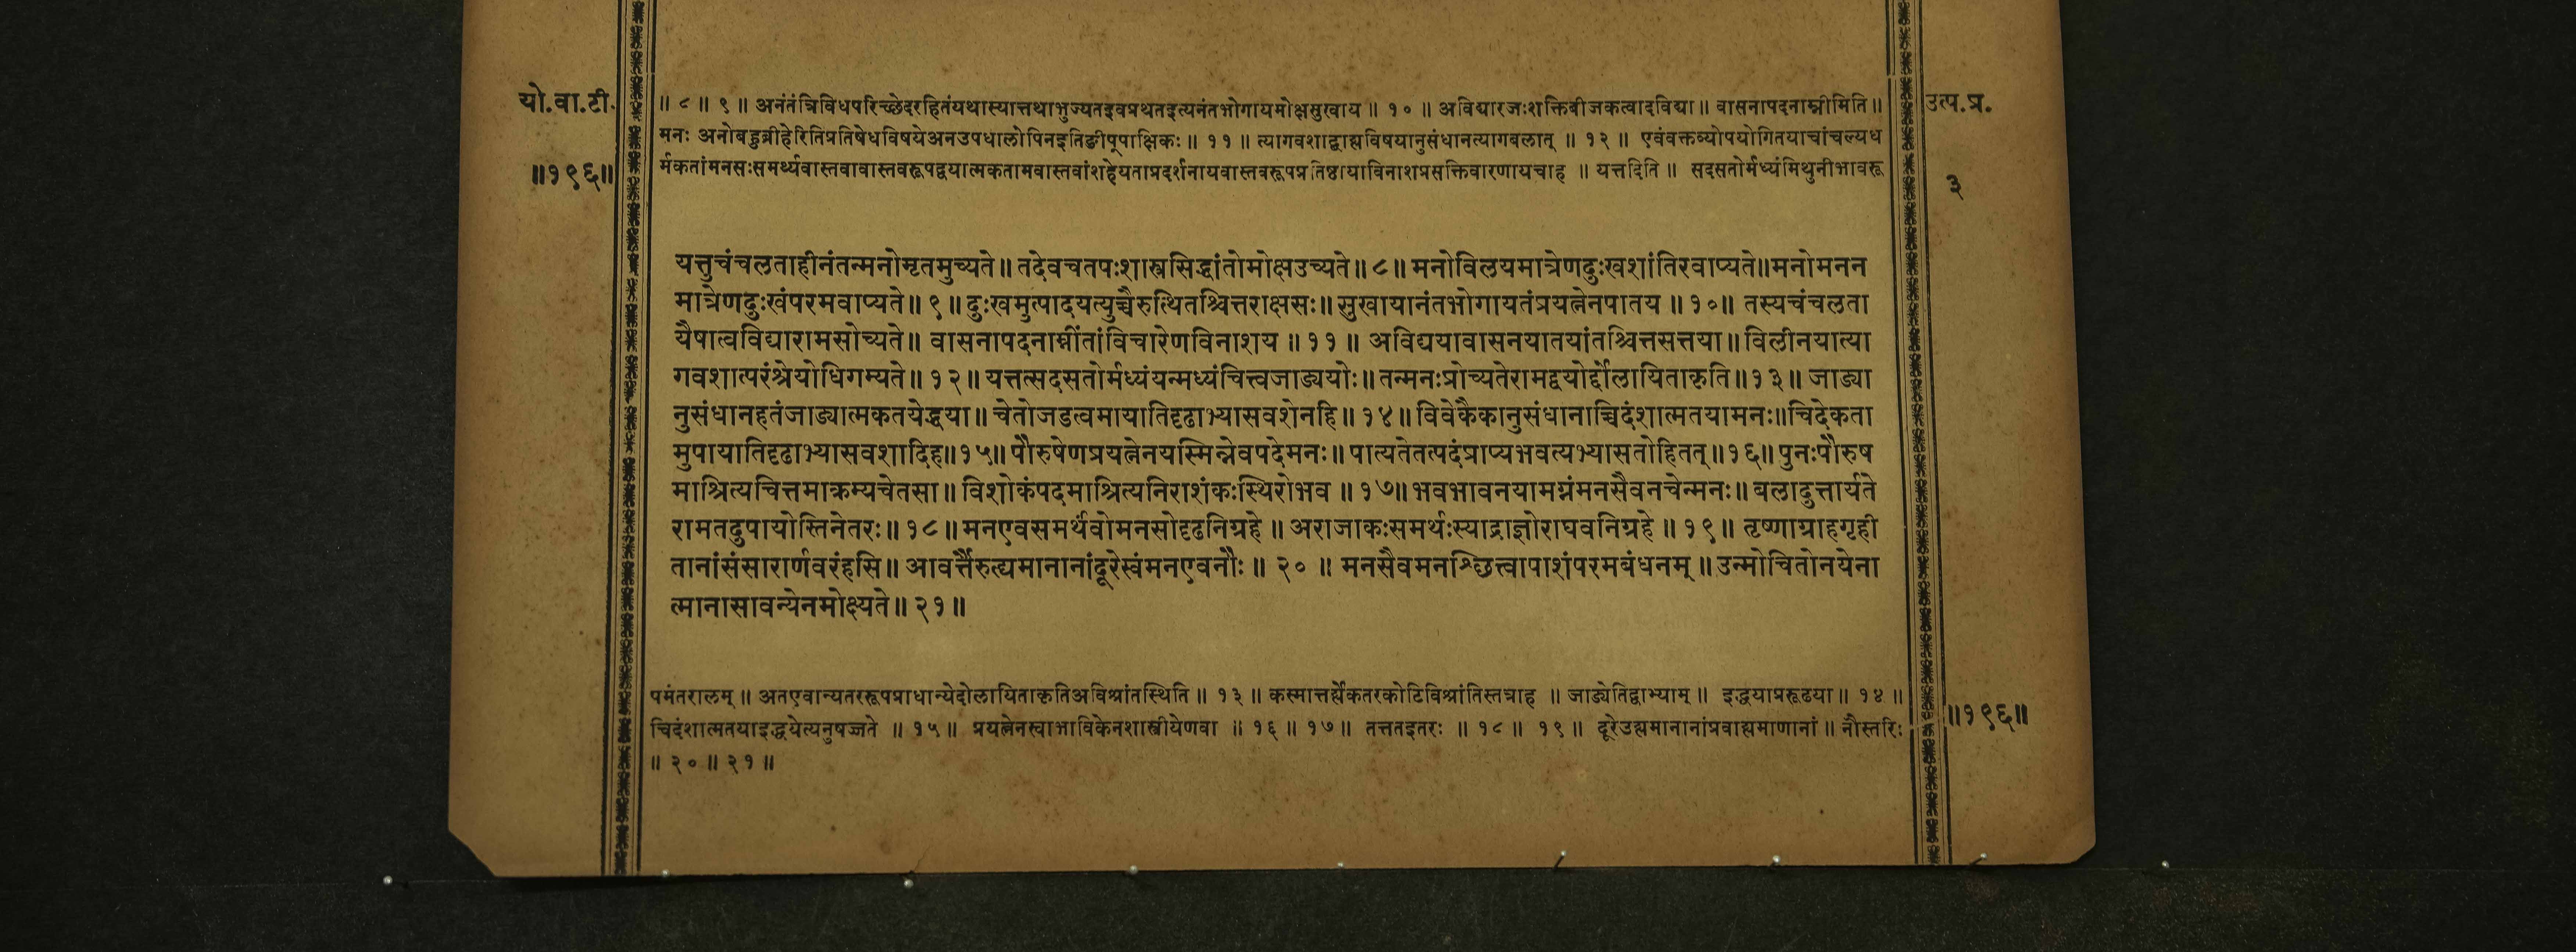 यो.वा.टी.
॥१९६॥
॥ ८ ॥ ९ ॥ अनंतंत्रिविधपरिच्छेदरहितंयथास्यात्तथाभुज्यतइवप्रथतइत्यनंतभोगायमोक्षसुखाय ॥ १० ॥ अविद्यारजःशक्तिबीजकत्वादविद्या ॥ वासनापदनाम्नीमिति ॥
मनः अनोबहुव्रीहेरितिप्रतिषेधविषयेअनउपधालोपिनइतिङीप्पाक्षिकः ॥ ११ ॥ त्यागवशाद्बाह्यविषयानुसंधानत्यागबलात् ॥ १२ ॥ एवंवक्तव्योपयोगितयाचांचल्यध
र्मकतांमनसःसमर्थ्यवास्तवावास्तवरूपद्वयात्मकतामवास्तवांशहेयताप्रदर्शनायवास्तवरूपप्रतिष्ठायाविनाशप्रसक्तिवारणायचाह ॥ यत्तदिति ॥ सदसतोर्मध्यंमिथुनीभावरू
उत्प.प्र.
३
यत्तुचंचलताहीनंतन्मनोमृतमुच्यते॥ तदेवचतपःशास्त्रसिद्धांतोमोक्षउच्यते॥ ८॥ मनोविलयमात्रेणदुःखशांतिरवाप्यते॥मनोमनन
मात्रेणदुःखंपरमवाप्यते॥ ९ ॥ दुःखमुत्पादयत्युच्चैरुत्थितश्चित्तराक्षसः॥ सुखायानंतभोगायतंप्रयत्नेनपातय ॥ १०॥ तस्यचंचलता
यैषात्वविद्यारामसोच्यते॥ वासनापदनाम्नींतांविचारेणविनाशय ॥ ११ ॥ अविद्ययावासनयातयांतश्चित्तसत्तया॥ विलीनयात्या
गवशात्परंश्रेयोधिगम्यते॥ १२॥ यत्तत्सदसतोर्मध्यंयन्मध्यंचित्त्वजाड्ययोः॥ तन्मनःप्रोच्यतेरामद्वयोर्दोलायिताकृति॥१३॥ जाड्या
नुसंधानहतंजाड्यात्मकतयेद्धया॥ चेतोजडत्वमायातिदृढाभ्यासवशेनहि॥ १४॥ विवेकैकानुसंधानाच्चिदंशात्मतयामनः॥चिदेकता
मुपायातिदृढाभ्यासवशादिह॥१५॥ पौरुषेणप्रयत्नेनयस्मिन्नेवपदेमनः॥ पात्यतेतत्पदंप्राप्यभवत्यभ्यासतोहितत्॥१६॥ पुनःपौरुष
माश्रित्यचित्तमाक्रम्यचेतसा॥ विशोकंपदमाश्रित्यनिराशंकःस्थिरोभव ॥ १७॥ भवभावनयामग्नंमनसैवनचेन्मनः॥ बलादुत्तार्यते
रामतदुपायोस्तिनेतरः॥ १८॥ मनएवसमर्थंवोमनसोदृढनिग्रहे ॥ अराजाकःसमर्थःस्याद्राज्ञोराघवनिग्रहे ॥ १९॥ तृष्णाग्राहगृही
तानांसंसारार्णवरंहसि॥ आवर्त्तैरुह्यमानानांदूरेस्वंमनएवनौः ॥ २० ॥ मनसैवमनश्छित्त्वापाशंपरमबंधनम् ॥ उन्मोचितोनयेना
त्मानासावन्येनमोक्ष्यते॥ २१॥
पमंतरालम् ॥ अतएवान्यतररूपप्राधान्येदोलायिताकृतिअविश्रांतस्थिति ॥ १३ ॥ कस्मात्तर्ह्येकतरकोटिविश्रांतिस्तत्राह ॥ जाड्येतिद्वाभ्याम् ॥ इद्धयाप्ररूढया॥ १४ ॥
चिदंशात्मतयाइद्धयेत्यनुषज्जते ॥ १५॥ प्रयत्नेनस्वाभाविकेनशास्त्रीयेणवा ॥ १६ ॥ १७॥ तत्ततइतरः ॥ १८ ॥ १९ ॥ दूरेउह्यमानानांप्रवाह्यमाणानां ॥ नौस्तरिः
॥ २० ॥ २१ ॥
॥१९६॥